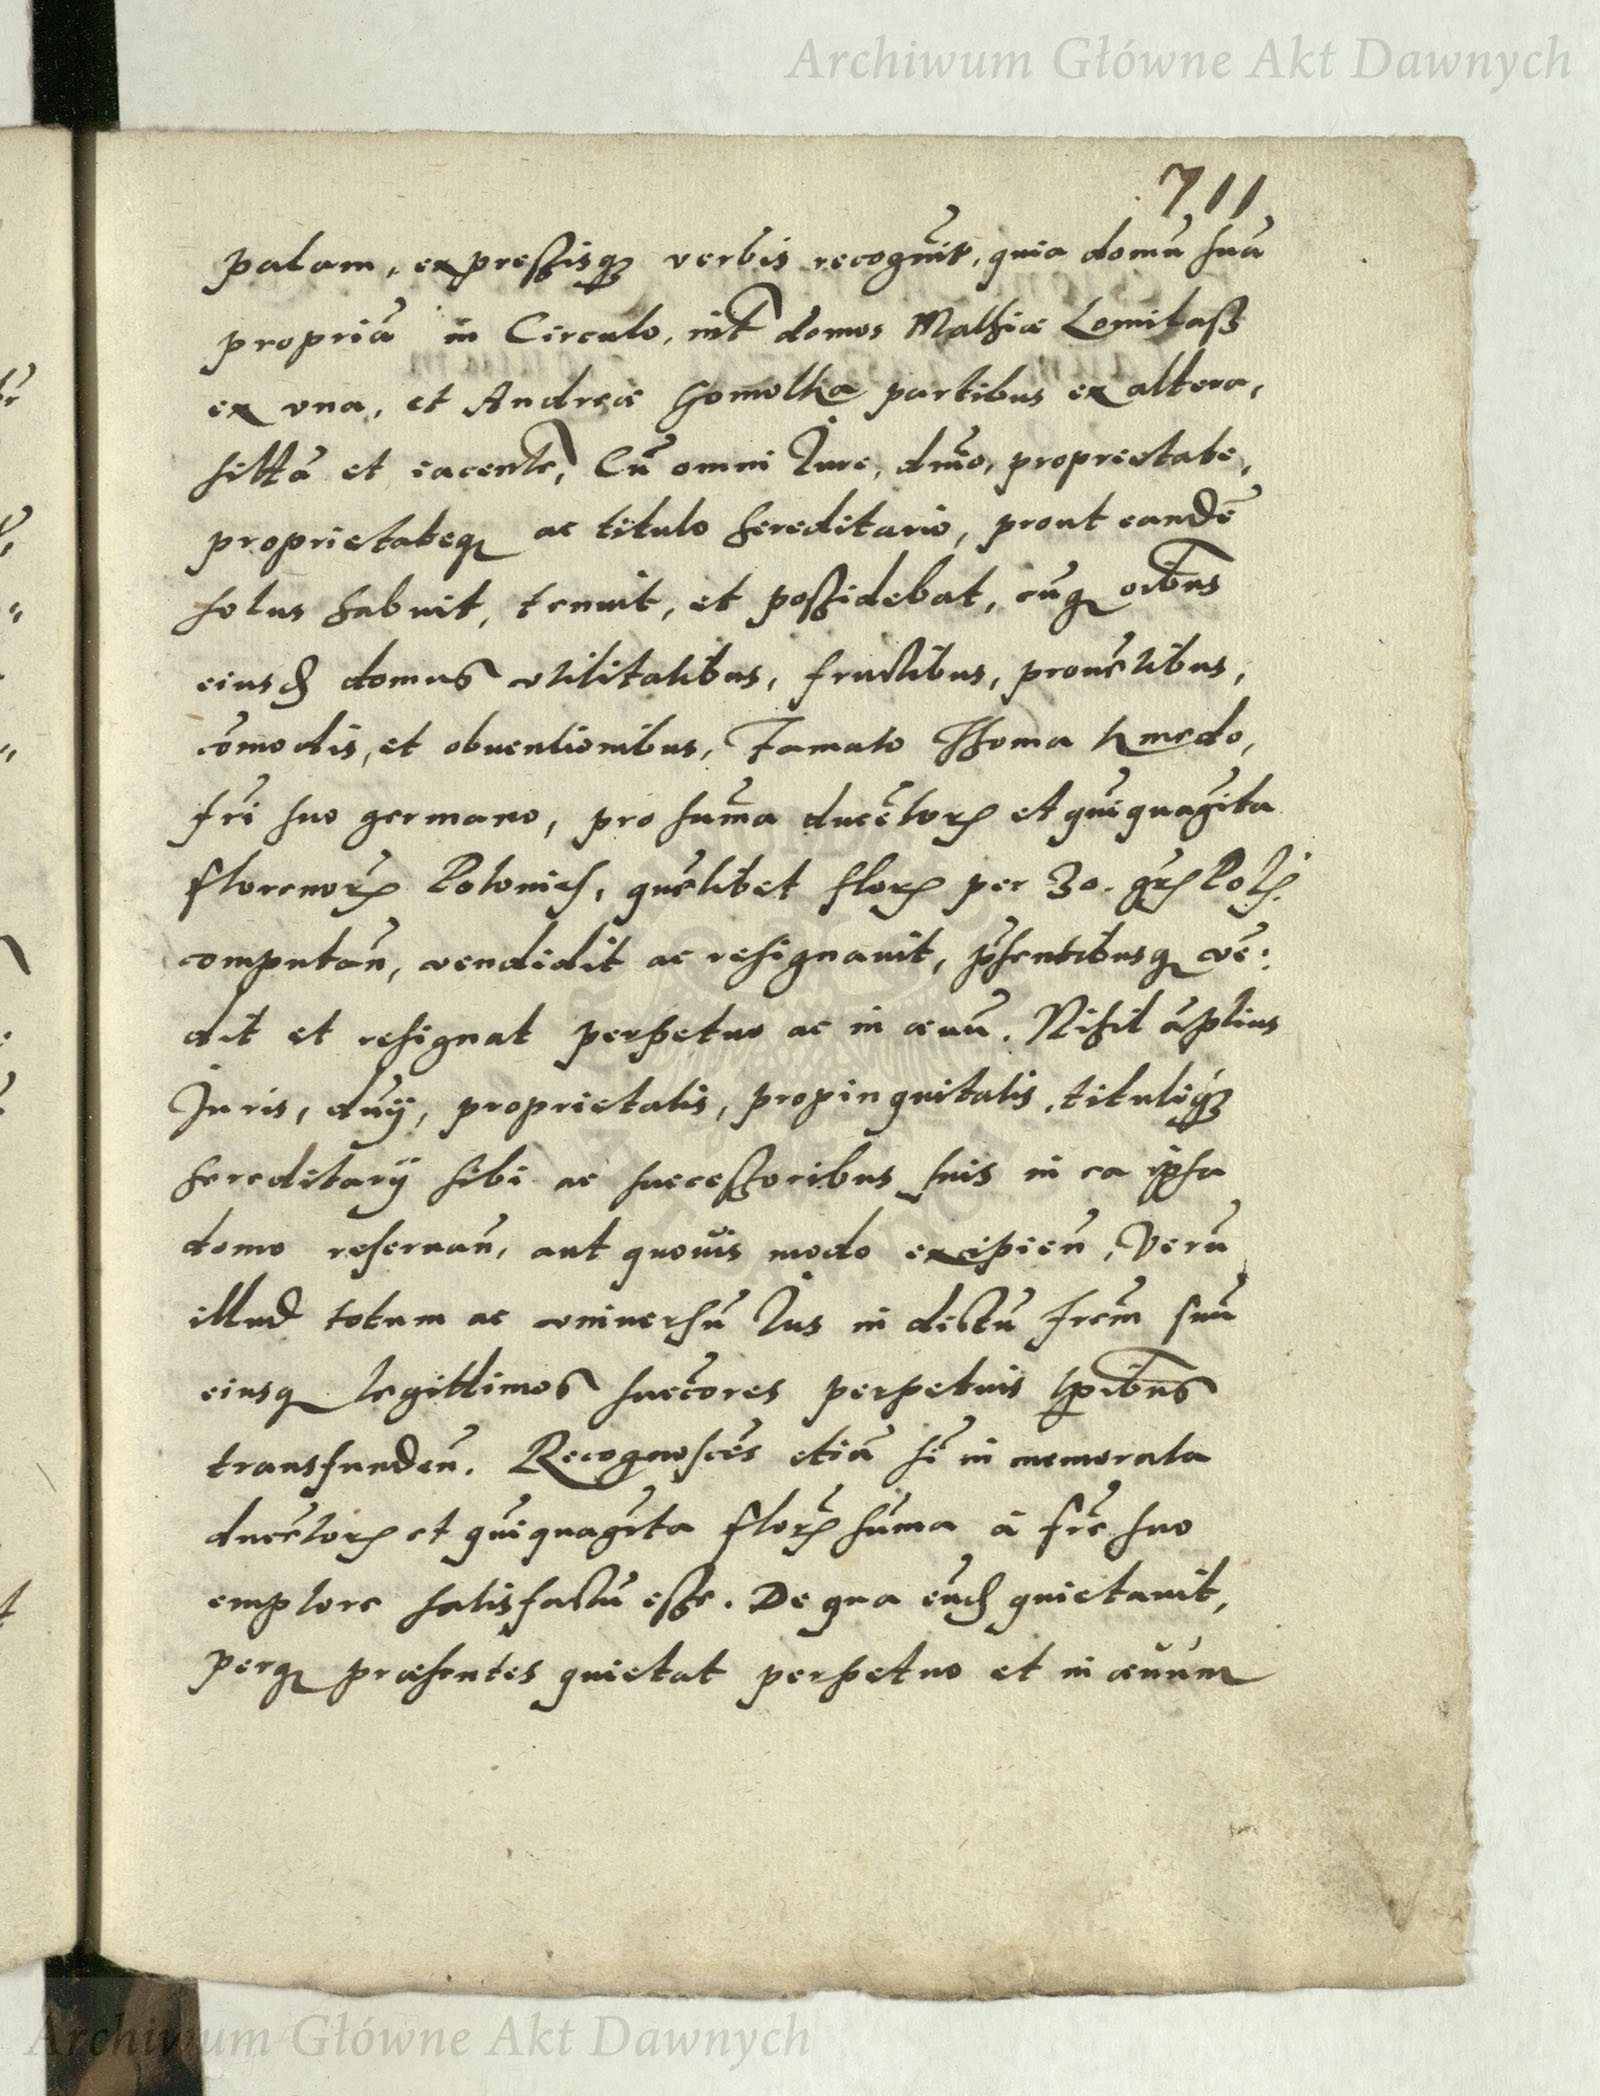 Archiwum Główne Akt Dawnych
711
palam, expressisq́ꝫ verbis recognu̅it, quia domu̅ sua̅
propria̅ in Circulo, int̅ domos Mathiæ Lomitass
ex vna, et Andreæ Homolka partibus ex altera,
sitta̅ et iacente̅, Cu̅ omni Iure, dn̅io, proprietate,
proprietateq; ac titulo hereditario, prout eande̅
solus habuit, tenuit, et possidebat, cu̅q; oi̅bus
eiusd̅ domus vtilitatibus, fructibus, prove̅tibus,
co̅modis, et obuentionibus, Famato Thoma Kmedo,
fr̅i suo germano, pro sum̅a duce̅torꝝ et qui̅quagi̅ta
florenorꝝ Polonicꝝ, que̅libet florꝝ per 30. gr̅ꝝ Polꝝ.
computan̅, vendidit ac resignauit, p̅sentibusq; ve̅:
dit et resignat perpetuo ac in æuu̅. Nihil a̅plius
Iuris, dn̅ij, proprietatis, propinquitatis, tituliq́ꝫ
hereditarij sibi ac successoribus suis in ea ipsa
domo reseruan̅, aut quouis modo excipien̅, Veru̅
illud totum ac vniuersu̅ Ius in dictu̅ frem̅ suu̅
eiusq; legittimos succ̅ores perpetuis tp̅ribus
transfunden̅. Recognosce̅s etia̅ se̅ in memorata
duce̅torꝝ et qui̅quagi̅ta florꝝ su̅ma à fr̅e suo
emptore satisfactu̅ esse. De qua eu̅d̅ quietauit,
perq; præsentes quietat perpetuo et in æuum
Archiwum Główne Akt Dawnych